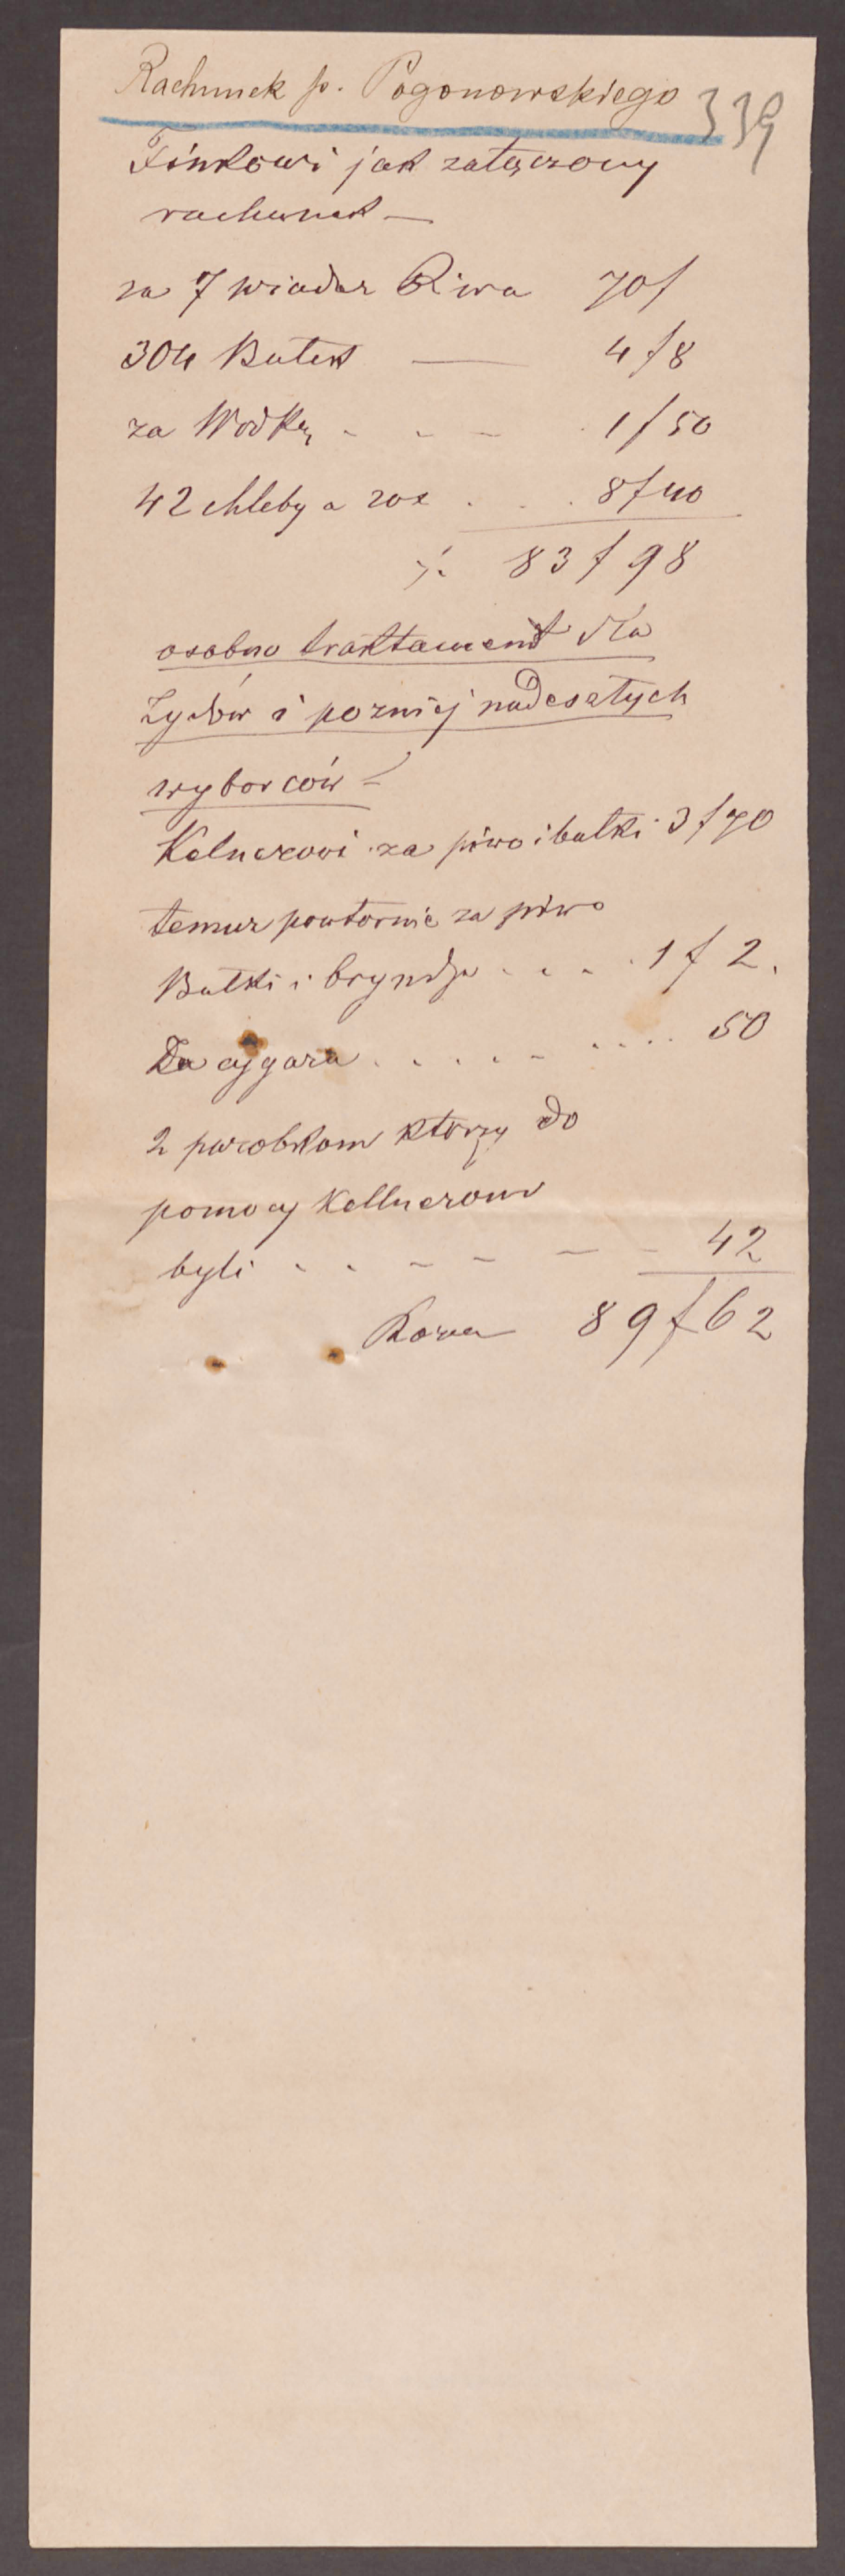 Rachunek p. Pogonowskiego 339
Finkowi jak załączony
rachunek —
za 7 wiader Piwa 70 f
304 Bułek — 4 f 8
za Wodkę - - - 1 f 50
42 chleby a 20x . . . 8 f 40
83 f 98
osobno traktament dla
Żydów i pozniej nadesłtych
wyborców —
Kelnerowi za piwo i bułki 3 f 70
temuz powtornie za piwo
Bułki i bryndzę . . . . 1 f 2.
Za cygara . . . . . . . . . 50
2 parobkom ktorzy do
pomocy Kellnerowi
byli . . - - - - 42
Razem 89 f 62